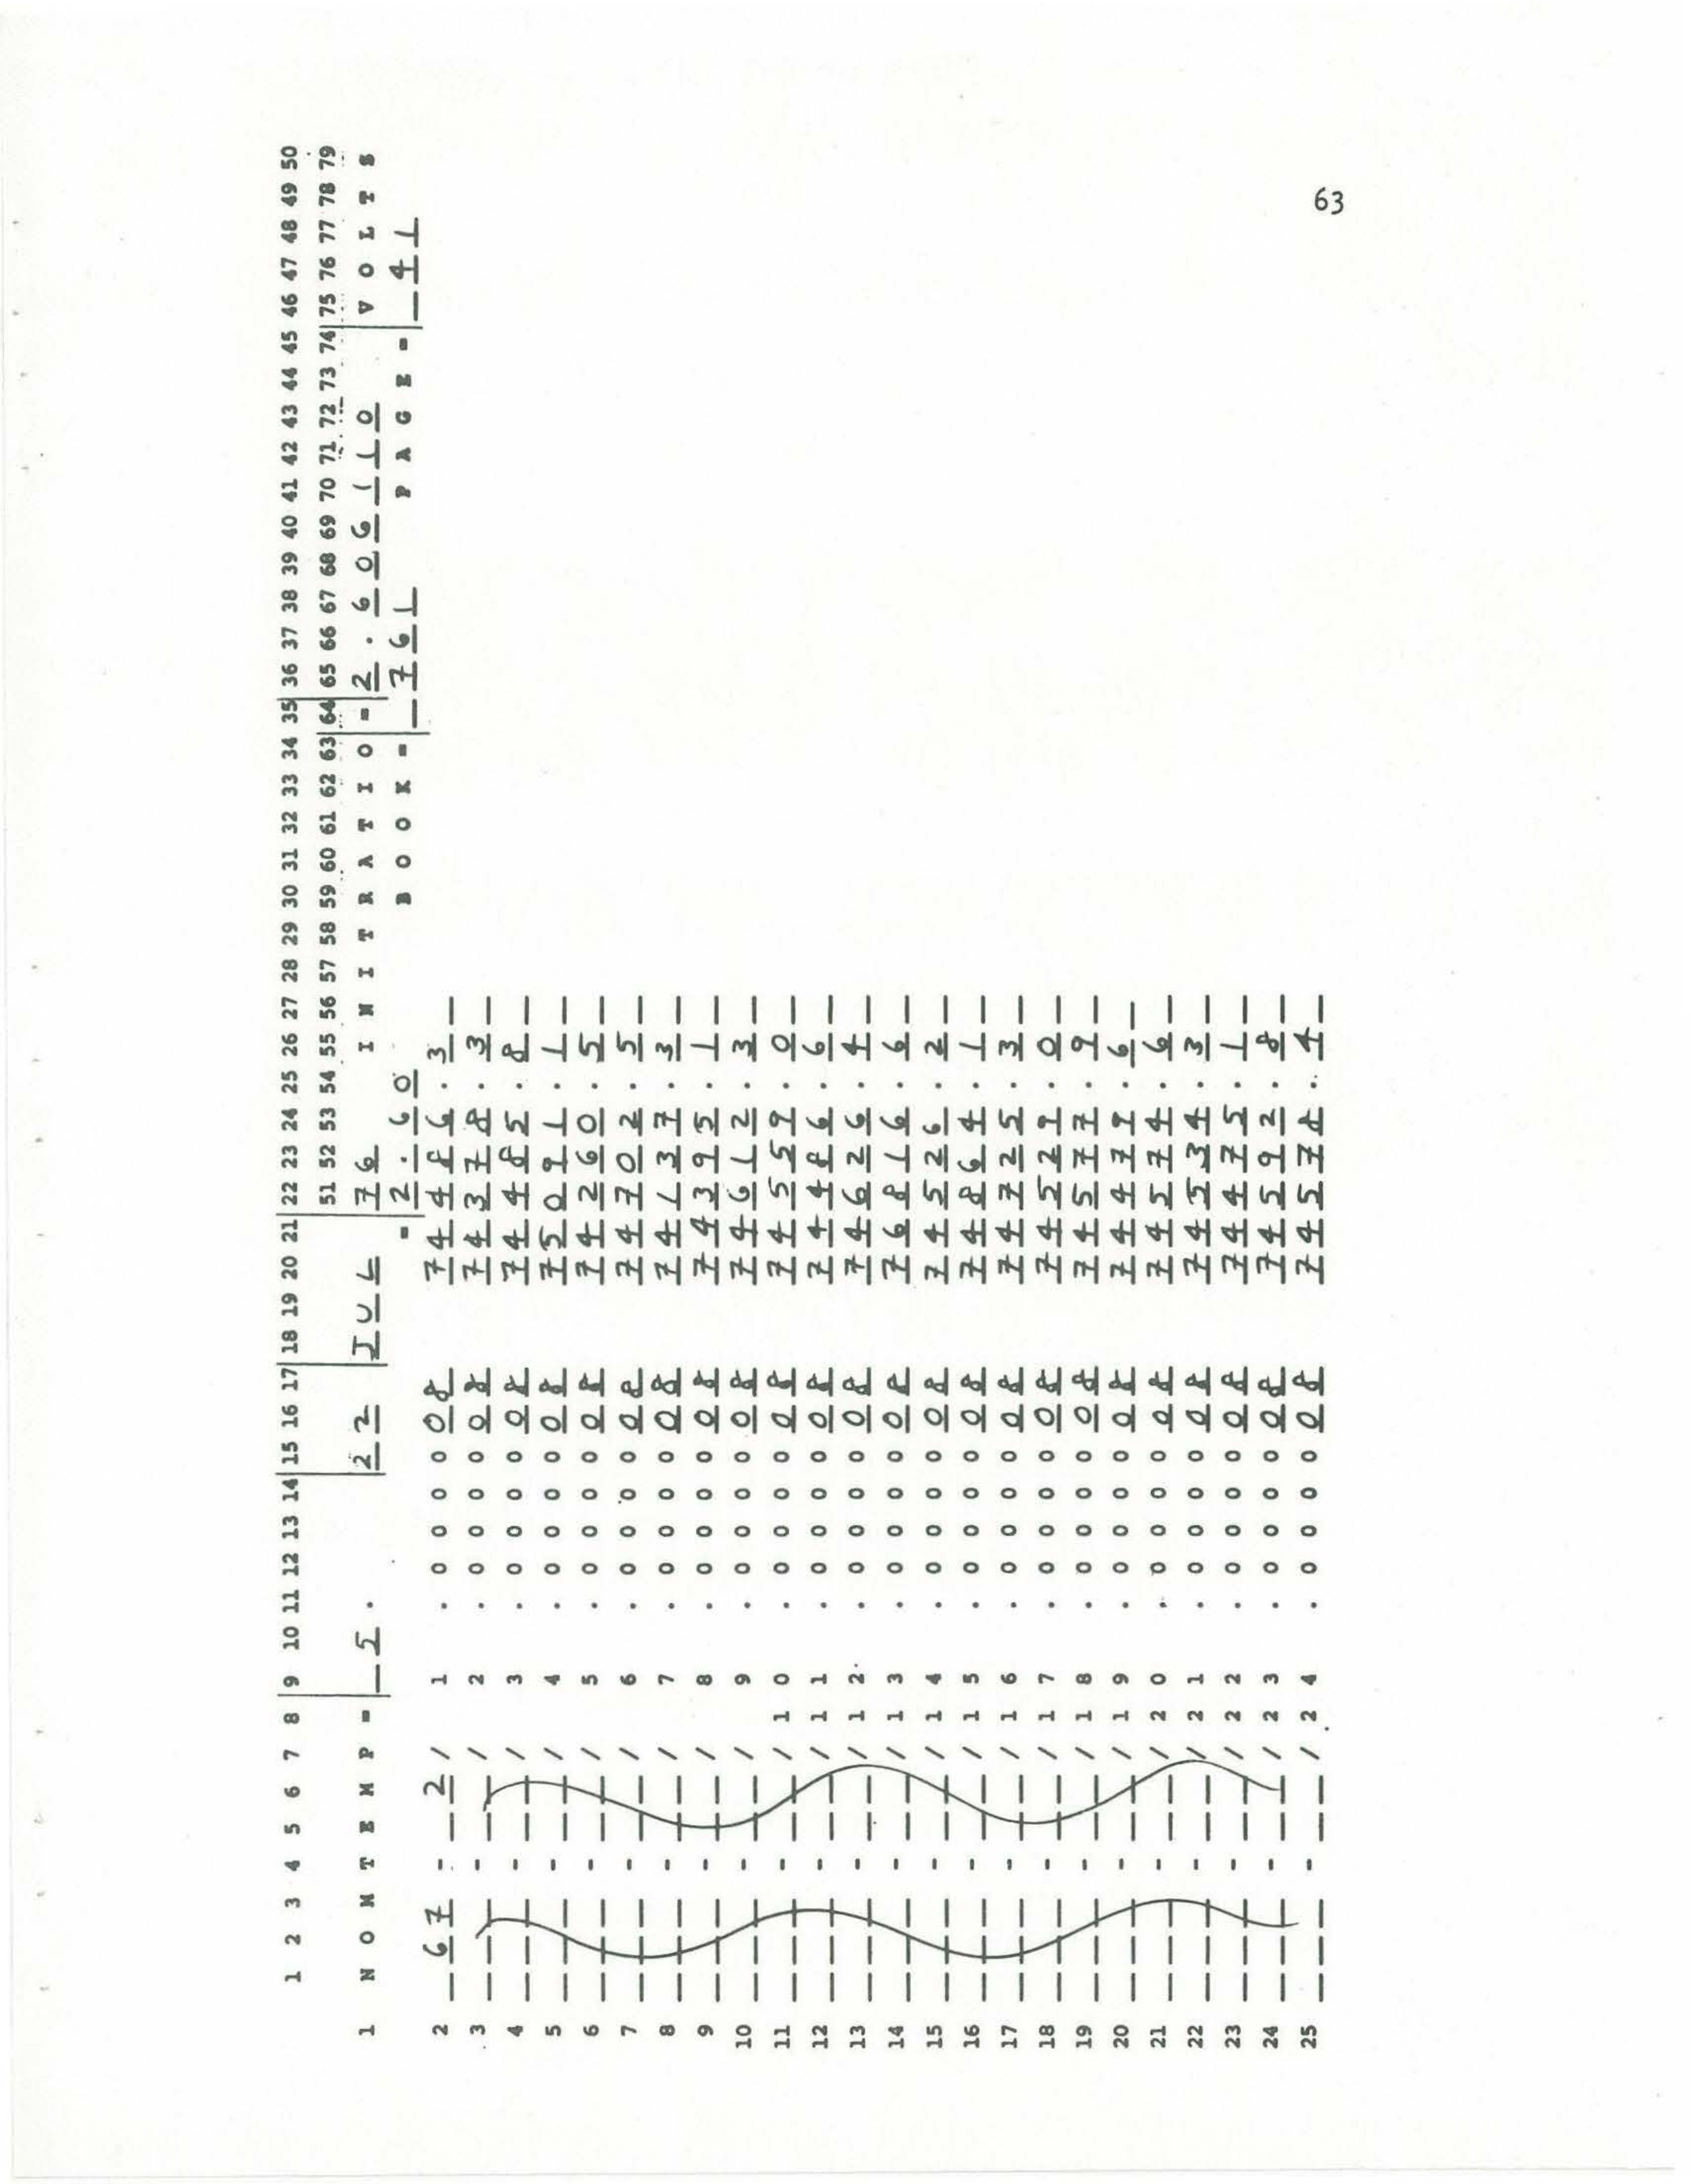 63
1 2 3 4 5 6 7 8 9 10 11 12 13 14 15 16 17 18 19 20 21 22 23 24 25 26 27 28 29 30 31 32 33 34 35 36 37 38 39 40 41 42 43 44 45 46 47 48 49 50
51 52 53 54 55 56 57 58 59 60 61 62 63 64 65 66 67 68 69 70 71 72 73 74 75 76 77 78 79
1 N O M T E M P = 5. 22 JUL 76 I N I T R A T I O = 2.606110 V O L T S
= 2.60 B O O K = 761 P A G E = 41
2 67 - 2 / 1 . 0 0 0 0 08 74486.3
3 - / 2 . 0 0 0 0 08 74378.3
4 - / 3 . 0 0 0 0 08 74485.8
5 - / 4 . 0 0 0 0 08 75091.1
6 - / 5 . 0 0 0 0 08 74260.5
7 - / 6 . 0 0 0 0 08 74702.5
8 - / 7 . 0 0 0 0 08 74137.3
9 - / 8 . 0 0 0 0 08 74395.1
10 - / 9 . 0 0 0 0 08 74612.3
11 - / 1 0 . 0 0 0 0 08 74559.0
12 - / 1 1 . 0 0 0 0 08 74486.6
13 - / 1 2 . 0 0 0 0 08 74626.4
14 - / 1 3 . 0 0 0 0 08 76816.6
15 - / 1 4 . 0 0 0 0 08 74526.2
16 - / 1 5 . 0 0 0 0 08 74864.1
17 - / 1 6 . 0 0 0 0 08 74725.3
18 - / 1 7 . 0 0 0 0 08 74529.0
19 - / 1 8 . 0 0 0 0 08 74577.9
20 - / 1 9 . 0 0 0 0 08 74479.6
21 - / 2 0 . 0 0 0 0 08 74574.6
22 - / 2 1 . 0 0 0 0 08 74534.3
23 - / 2 2 . 0 0 0 0 08 74475.1
24 - / 2 3 . 0 0 0 0 08 74592.8
25 - / 2 4 . 0 0 0 0 08 74578.4